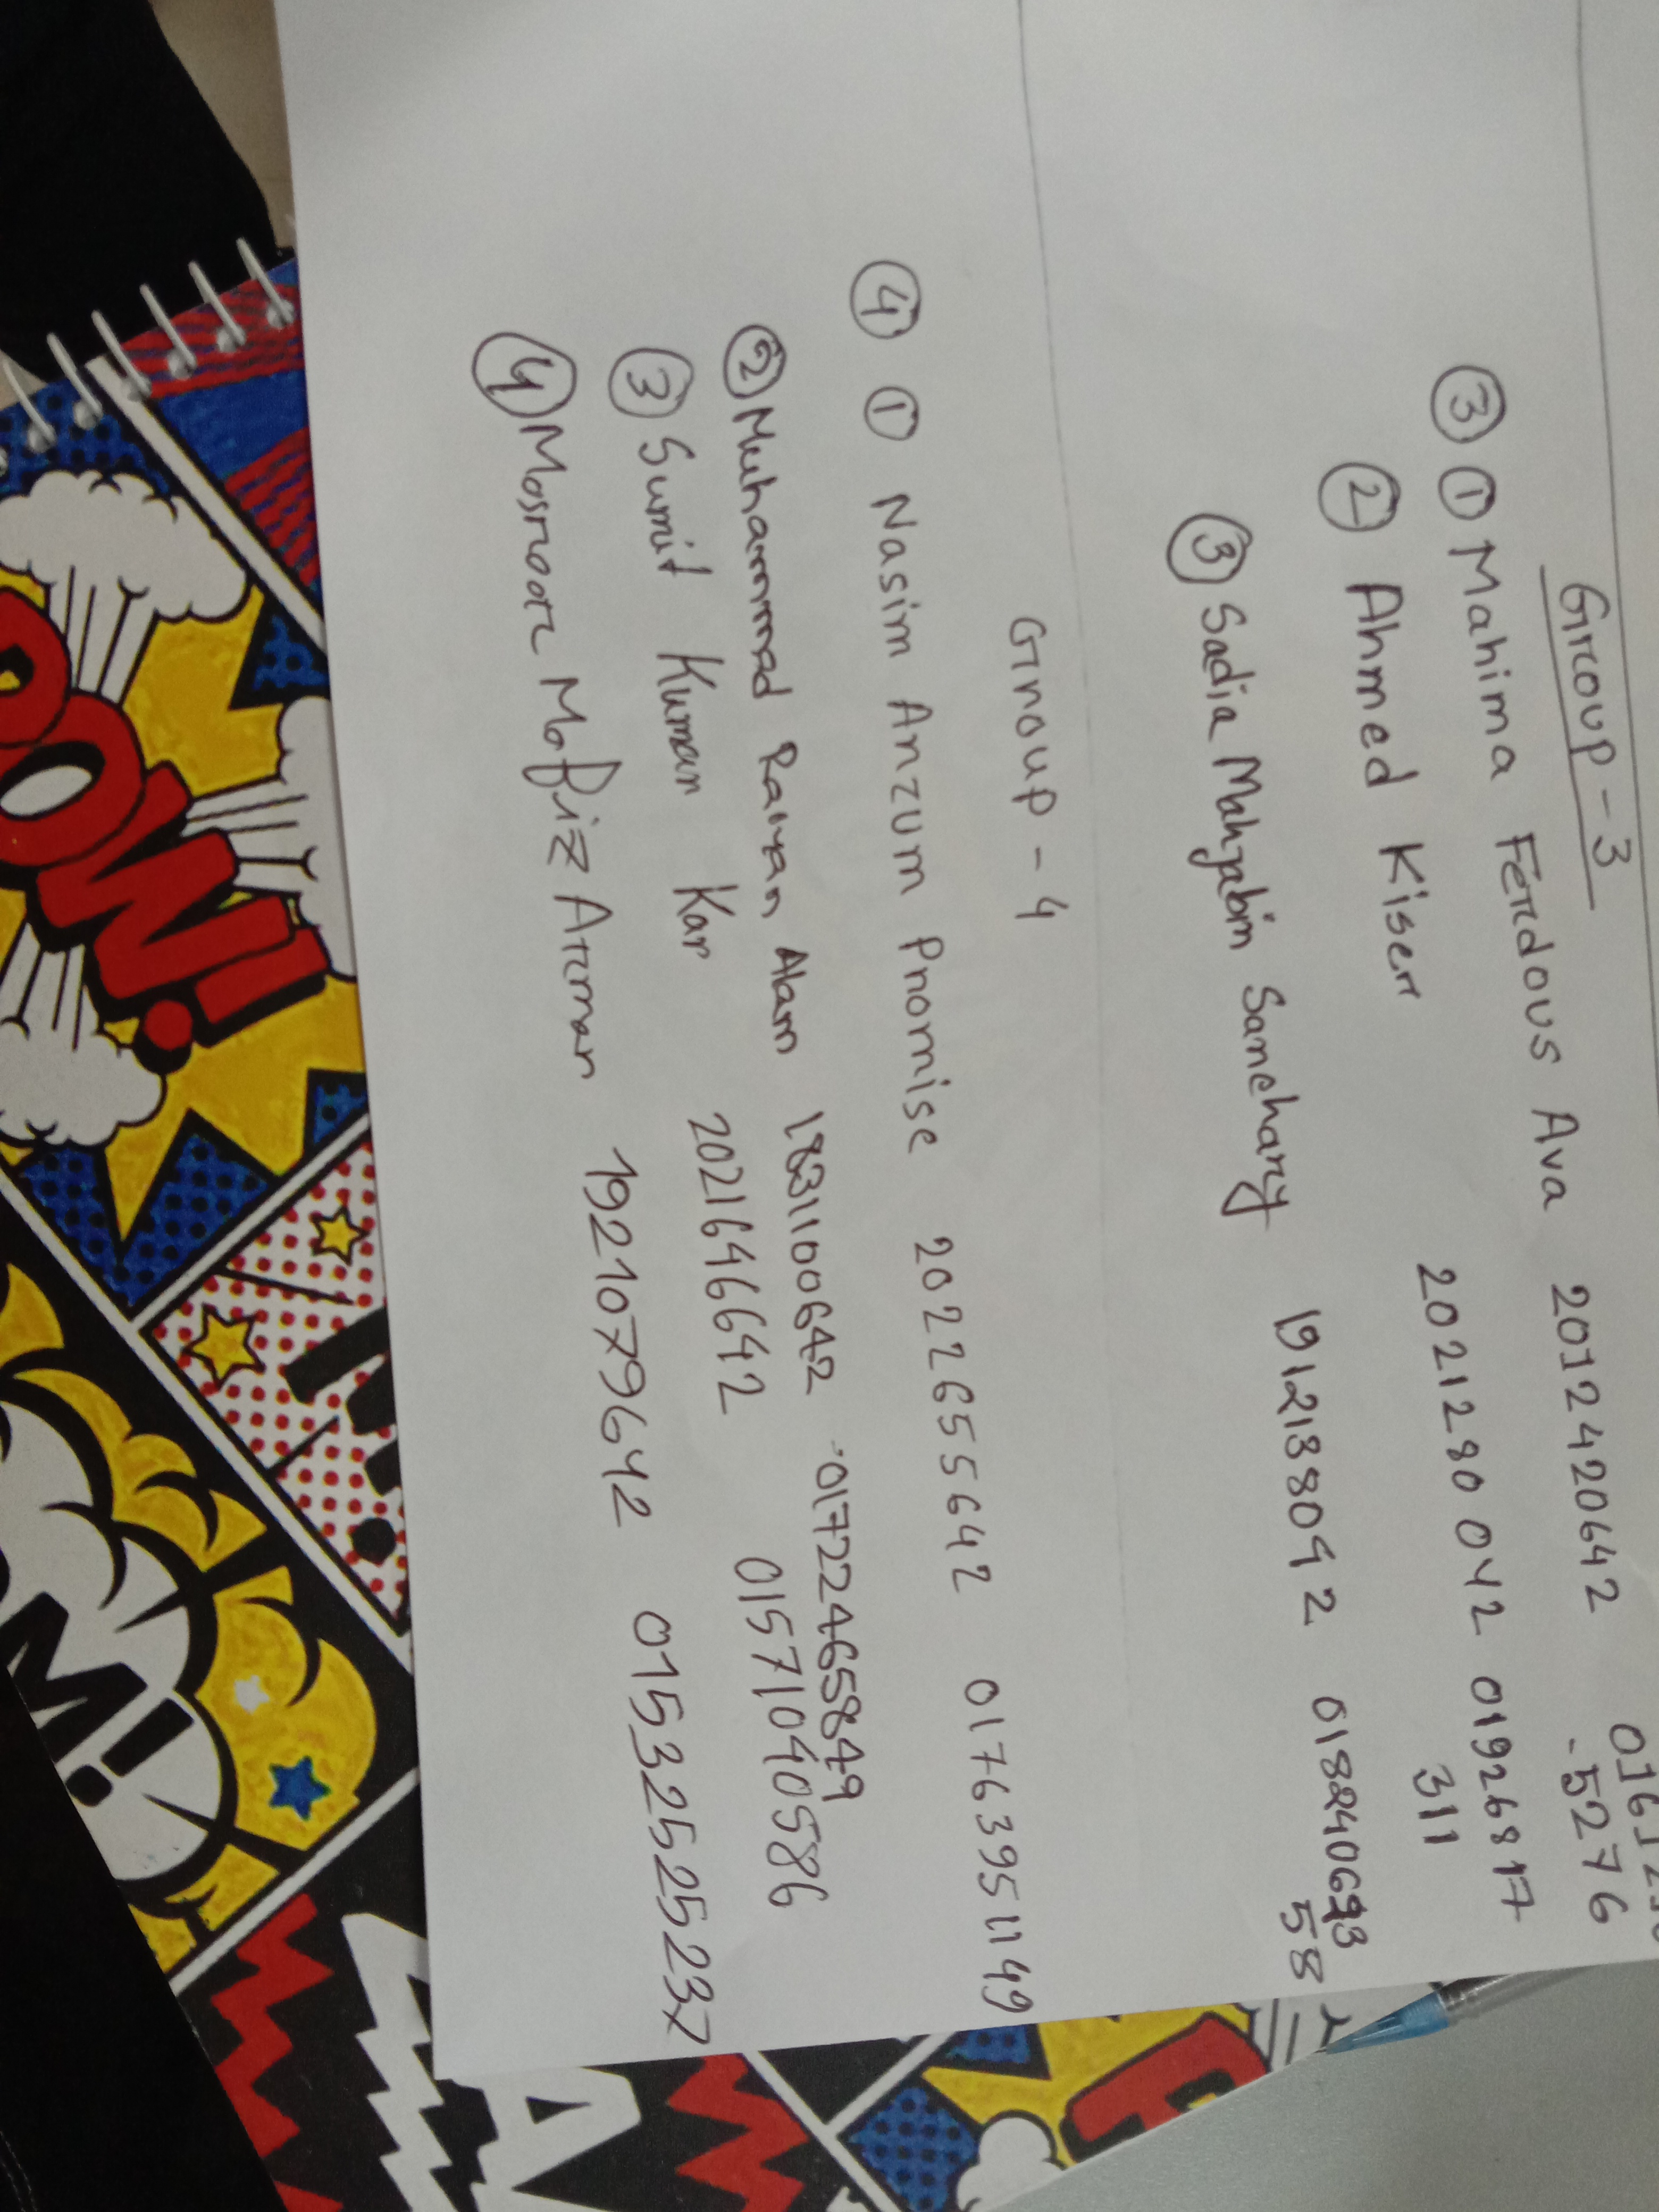 Group-3
③ ① Mahima Ferdous Ava 2012420642 0161
-5276
② Ahmed Kiser 2021280042 01926817
311
③ Sadia Mahjabin Sanchary 1912138042
58
Group-4
④ ① Nasim Anzum Promise 2022655642 01763951149
② Muhammad Raiyan Alam 1831100642 01722465849
③ Sumit Kumar Kar 2021646642 01571040586
④ Mosnoor Mofiz Arman 1921079642 01532525237
POW!
M!